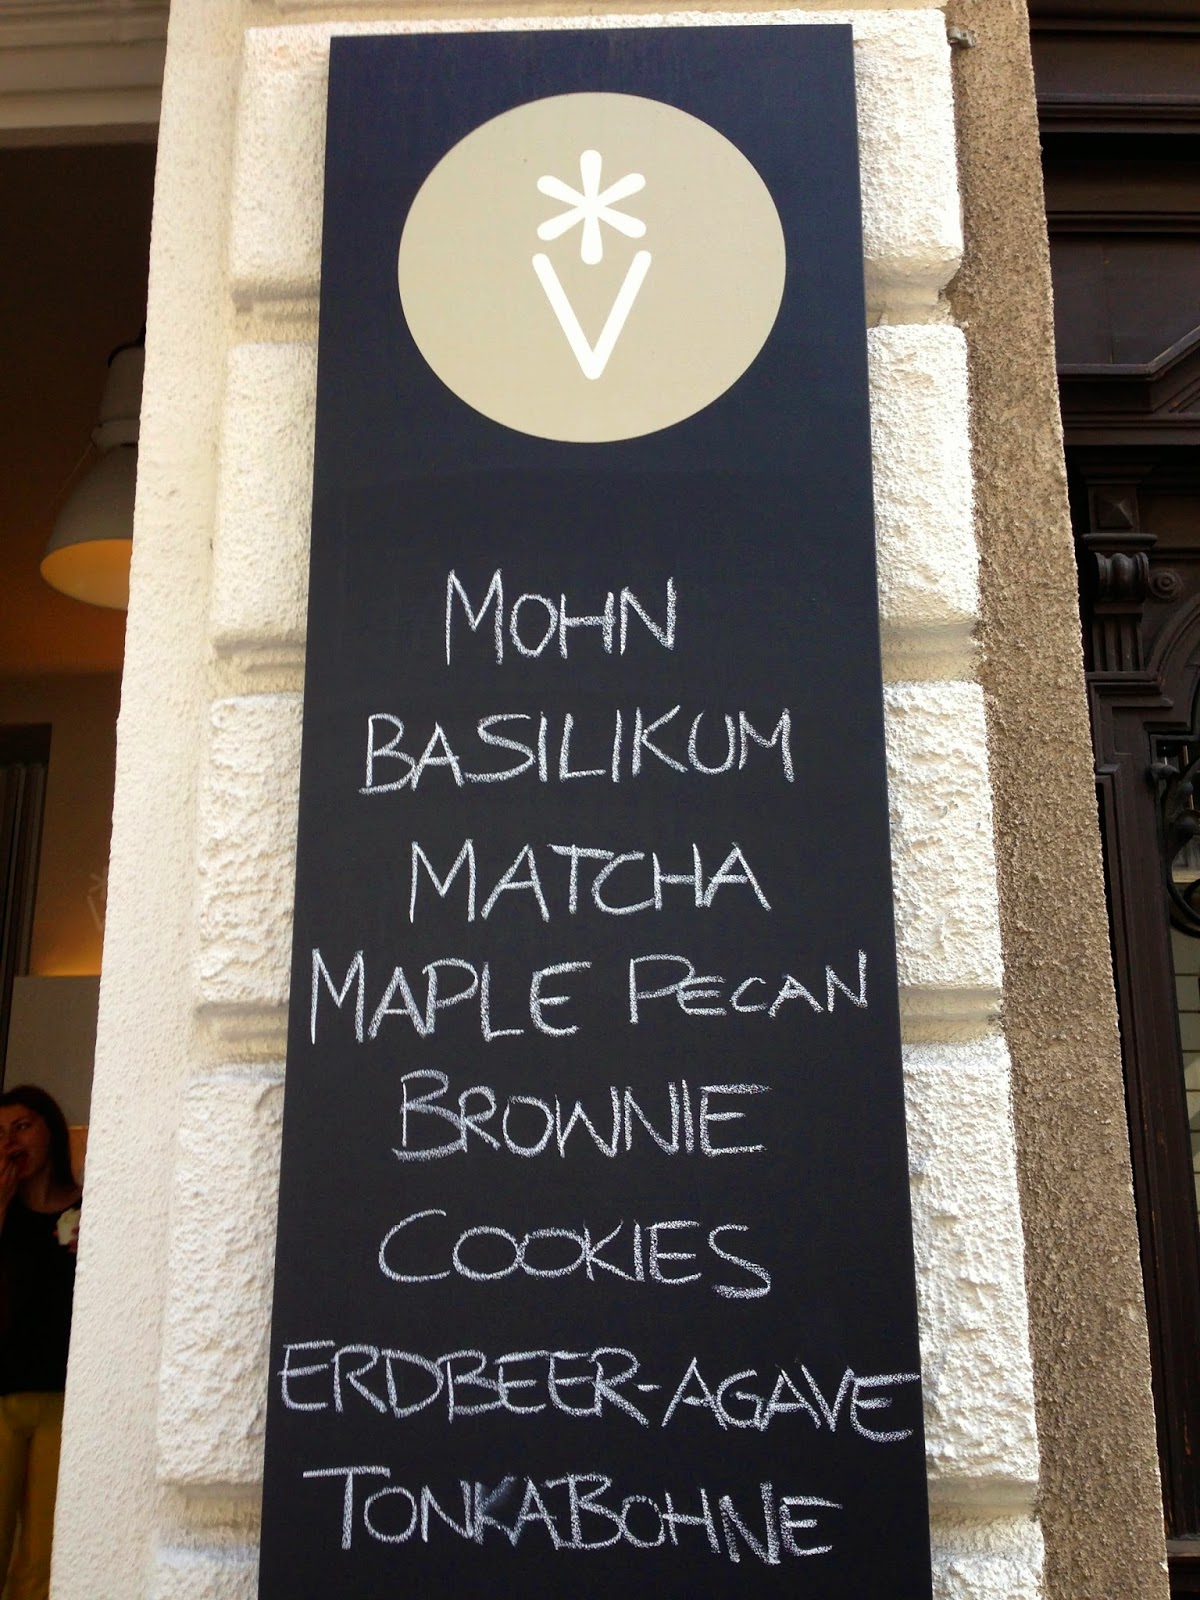 MOHN
BASILIKUM
MATCHA
MAPLE PECAN
BROWNIE
COOKIES
ERDBEER-AGAVE
TONKABOHNE